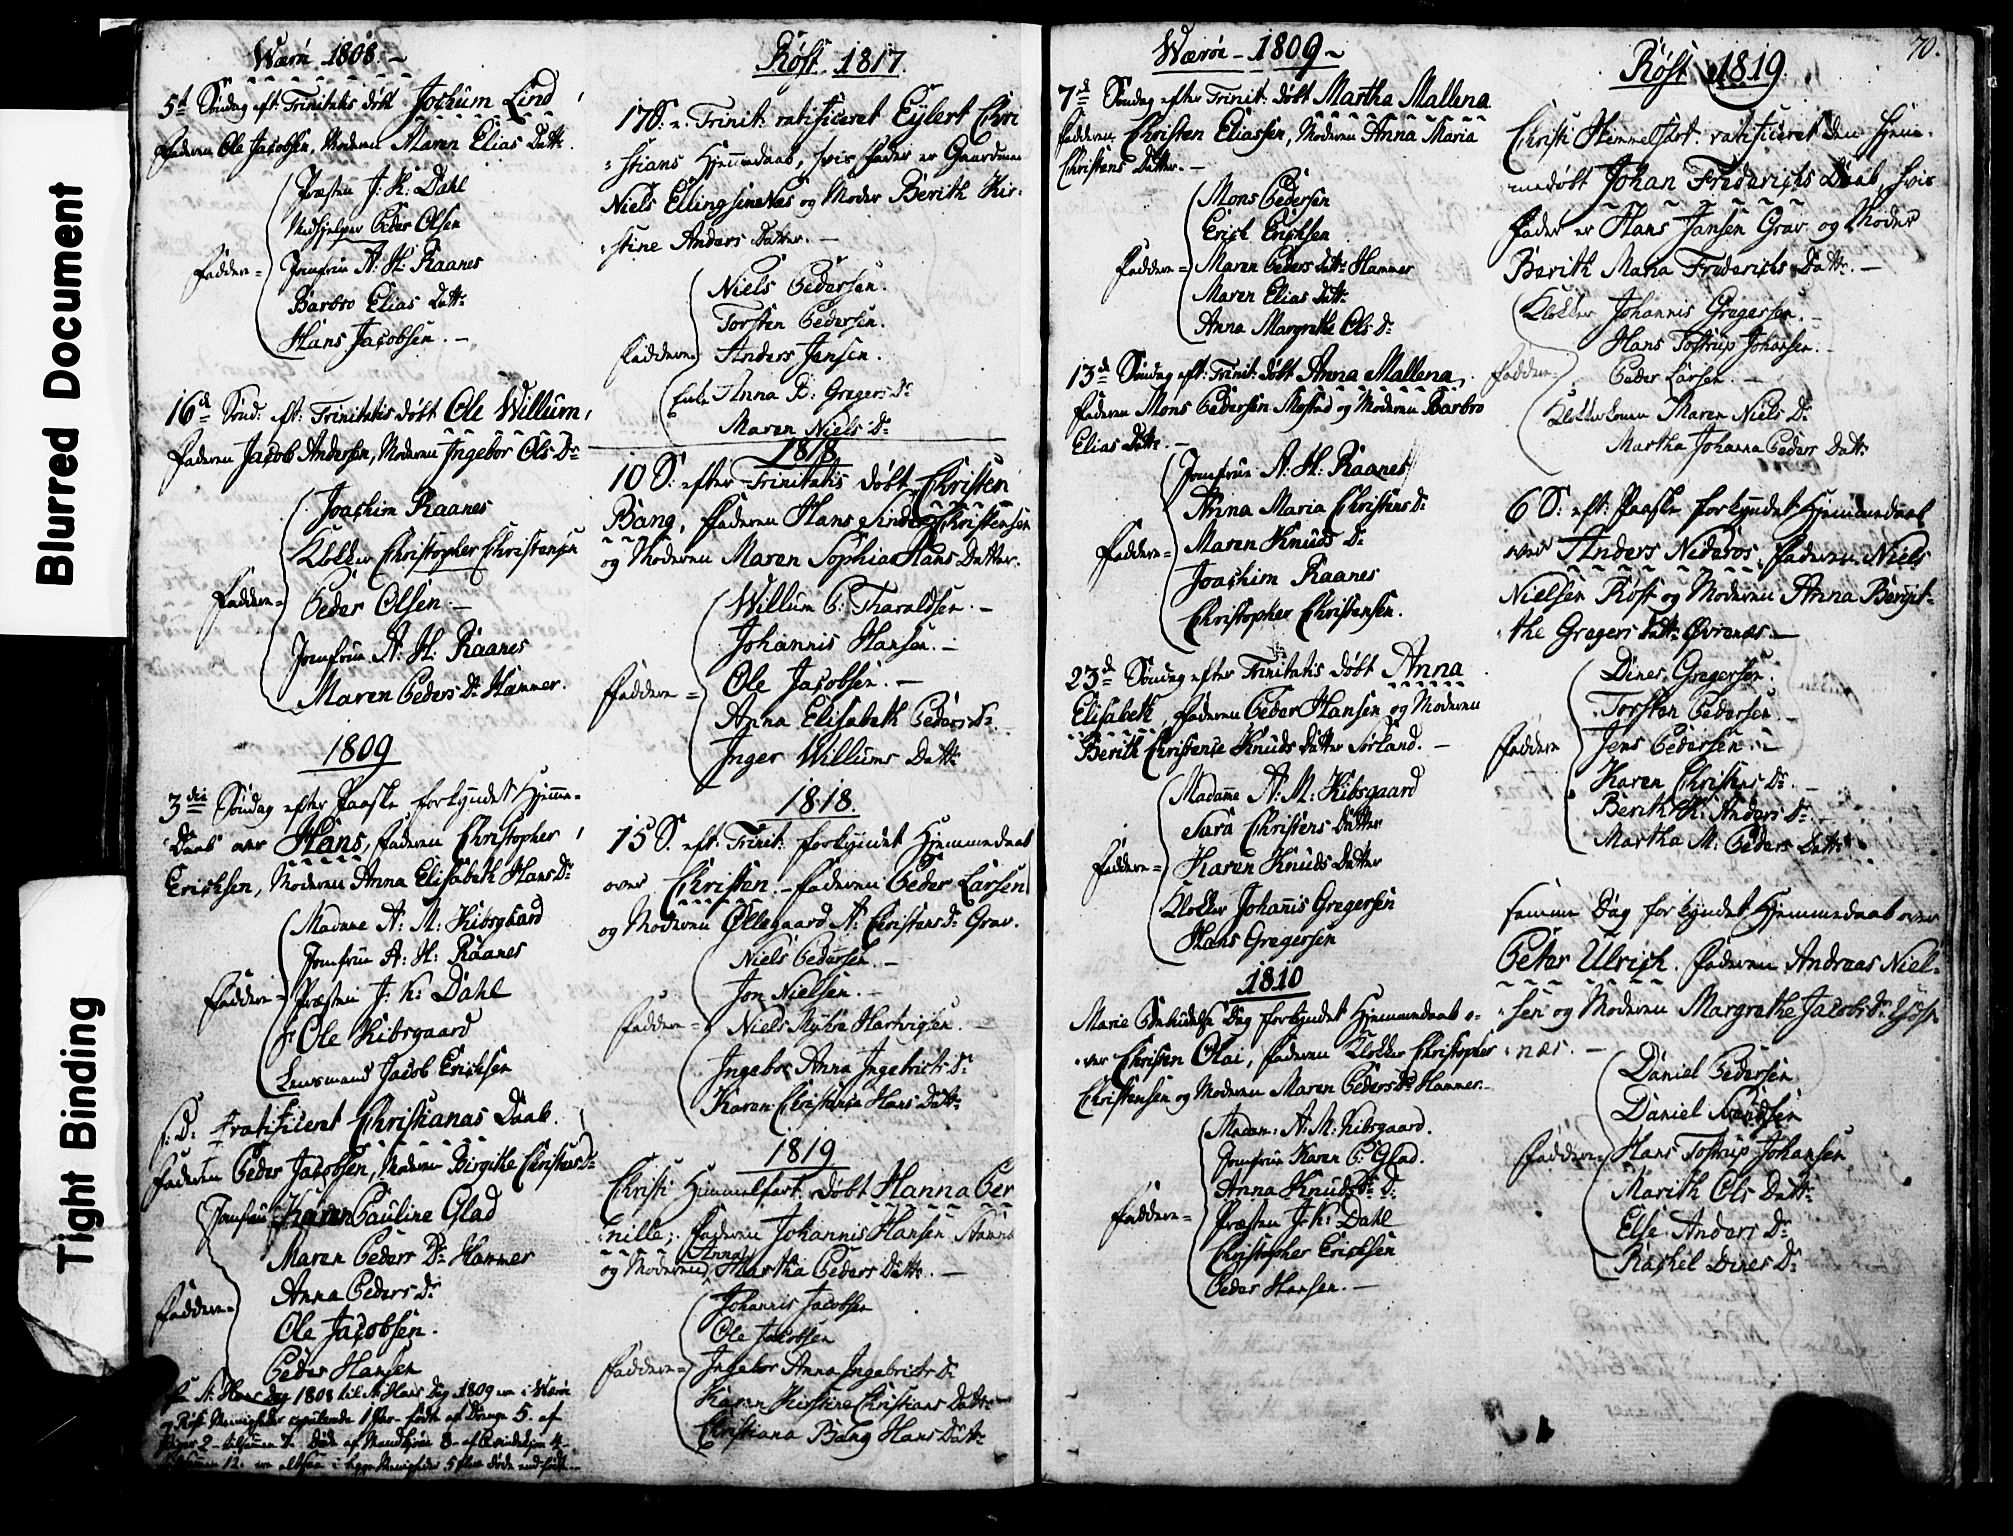 Blurred Document
Tight Binding
Værøi 1808.
5te Søndag eft: Trinitatis døbt Jochum Lind,
Faderen Ole Jacobsen, Moderen Maren Elias Dattr.
Præsten J: K: Dahl
Medhjelper Peder Olsen
Faddere = Jomfrue A: H: Raanes
Barbro Elias Dattr
Hans Jacobsen. -
16de Sønd: eft: Trinitatis døbt Ole Willum,
Faderen Jacob Andersen, Moderen Ingebor Ols Dr
Joachim Raanes
Klokker Christopher Christensen
Faddere = Peder Olsen -
Jomfrue A: H: Raanes
Maren Peders Dr Hammer.
1809
3die Søndag efter Paaske forkyndet Hjemme-
Daab over Hans, Faderen Christopher
Erichsen, Moderen Anna Elisabeth Hans Dr
Madame A: M: Kibsgaard
Jomfrue A: H: Raanes
Faddere = Præsten J: K: Dahl
Hr Ole Kibsgaard
Lensmand Jacob Erichsen
S: D: ratificeret Christianas Daab.
Faderen Peder Jacobsen, Moderen Birgithe Christens Dr
Jomfrue Karen Pauline Glad
Maren Peders Dr Hammer
Anna Peders Dr
Faddere = Ole Jacobsen.
Peder Hansen
St: Hans Dag 1808 til St: Hans Dag 1809 ere i Værøi
og Røst Menigheder copulerede 1 Par - fødte af Drenge 5. af
Piger 2 - tilsammen 7. Døde af Mandkjøn 8 - af Qvindekjøn 4 -
12. ere altsaa i begge Menigheder 5 flere døde end fødte. -
Røst 1817.
17 S. e. Trinit: ratificeret Eylert Chri
=stians Hjemmedaab, hvis Fader er Gaardmand
Niels Ellingsen Næs og Moder Berith Kir-
=stine Anders Datter. -
Niels Pedersen.
Torsten Pedersen.
Faddere Anders Jansen.
Enke Anna B: Gregers Dr
Maren Niels Dr
1818
10 S: efter Trinitatis døbt Christen
Bang, Faderen Hans Sinder Christensen
og Moderen Maren Sophia Hans Datter.
Willum P. Tharaldsen. -
Johannis Hansen. -
Faddere = Ole Jacobsen. -
Anna Elisabeth Peders Dr
Inger Willums Dattr
1818.
15 S. eft: Trinit: forkyndet Hjemmedaab
over Christen. - Faderen Peder Larsen
og Moderen Øllegaard A: Christens Dr Grav.
Niels Pedersen. -
Jon Nielsen. -
Faddere = Niels Mykra Hartvigsen. -
Ingebor Anna Ingebricts Dr
Karen Christense Hans Dattr
1819
Christi Himmelfart døbt Hanna Per
=nille; Faderen Johannis Hansen
og Moderen Anna Martha Peders Dattr. -
Johannis Jacobsen
Ole Jacobsen
Faddere = Ingebor Anna Ingebricts Dr
Karen Kirstine Christians Dattr
Christiana Bang Hans Dattr
Værøi - 1809 -
7de Søndag efter Trinit: døbt Martha Mallena
Faderen Christen Eliassen, Moderen Anna Maria
Christens Datter. -
Mons Pedersen
Erich Erichsen
Faddere = Maren Peders Dattr Hammer
Maren Elias Dattr
Anna Margrethe Ols Dr
13de Søndag eft: Trinit: døbt Anna Mallena,
Faderen Mons Pedersen Mostad og Moderen Barbro
Elias Dattr. -
Jomfrue A: H: Raanes
Anna Maria Christens Dr
Faddere = Maren Knuds Dr
Joachim Raanes
Christopher Christensen.
23de Søndag efter Trinitatis døbt Anna
Elisabeth, Faderen Peder Hansen og Moderen
Berith Christense Knuds Datter Sørland. -
Madame A: M: Kibsgaard
Sara Christens Datter
Faddere = Karen Knuds Datter
Klokker Johannis Gregersen
Hans Gregersen
1810
Marie Bebudelse Dag forkyndet Hjemmedaab o-
=ver Christen Olai, Faderen Klokker Christopher
Christensen og Moderen Maren Peders Dr Hammer. -
Madam: A: M: Kibsgaard.
Jomfrue Karen P: Glad.
Anna Knuds Dr
Faddere = Præsten J: K: Dahl
Christopher Erichsen
Peder Hansen. -
70.
Røst 1819.
Christi Hemmelfart: ratificeret den Hjem-
medøbt Johan Friderichs Daab, hvis
Fader er Hans Jansen Grav og Moder
Berith Maria Friderichs Dattr. -
Klokker Johannis Gregersen. -
Hans Tostrup Johansen. -
Faddere = Peder Larsen. -
Klokkerkonen Maren Niels Dr
Martha Johanna Peders Dattr
6 S: eft: Paaske forkyndet Hjemmedaab
over Anders Nideros, Faderen Niels
Nielsen Røst og Moderen Anna Berit-
the Gregers Dattr Øvrenæs. -
Dines Gregersen.
Torsten Pedersen
Faddere Jens Pedersen. -
Karen Christens Dr. -
Berith K: Anders Dr. -
Martha M: Peders Dattr
Samme Dag forkyndet Hjemmedaab over
Peter Ulrich. Faderen Andreas Niel-
=sen og Moderen Margrethe Jacobs Dr
=næs. -
Daniel Pedersen
Daniel Svendsen
Faddere Hans Tostrup Johansen
Marith Ols Dattr
Else Anders Dr
Rachel Dines Dr